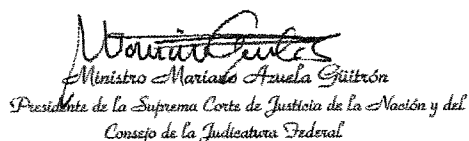 Ministro Mariano Azuela Güitrón
Presidente de la Suprema Corte de Justicia de la Nación y del
Consejo de la Judicatura Federal